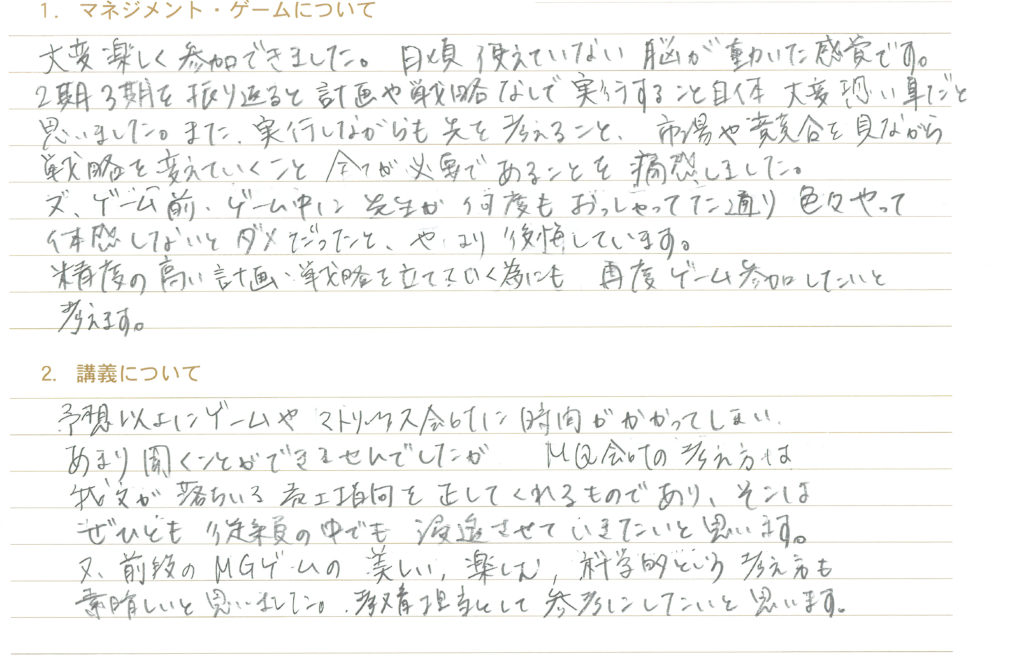 1. マネジメント・ゲームについて
大変楽しく参加できました。日頃使えていない脳が動いた感覚です。
2期3期を振り返ると計画や戦略なしで実行すること自体大変恐い事だと
思いました。また、実行しながらも先を考えること、市場や競合を見ながら
戦略を変えていくこと全てが必要であることを痛感しました。
又、ゲーム前・ゲーム中に先生が何度もおっしゃってた通り色々やって
体感しないとダメだったと、やはり後悔しています。
精度の高い計画・戦略を立てていく為にも再度ゲーム参加したいと
考えます。
2. 講義について
予想以上にゲームやマトリックス会計に時間がかかってしまい、
あまり聞くことができませんでしたがMQ会計の考え方は
我々が落ちいる志向を正してくれるものであり、そこは
ぜひとも従業員の中でも浸透させていきたいと思います。
又、前段のMGゲームの美しい,楽しむ,科学的という考え方も
素晴しいと思いました。教育担当として参考にしたいと思います。